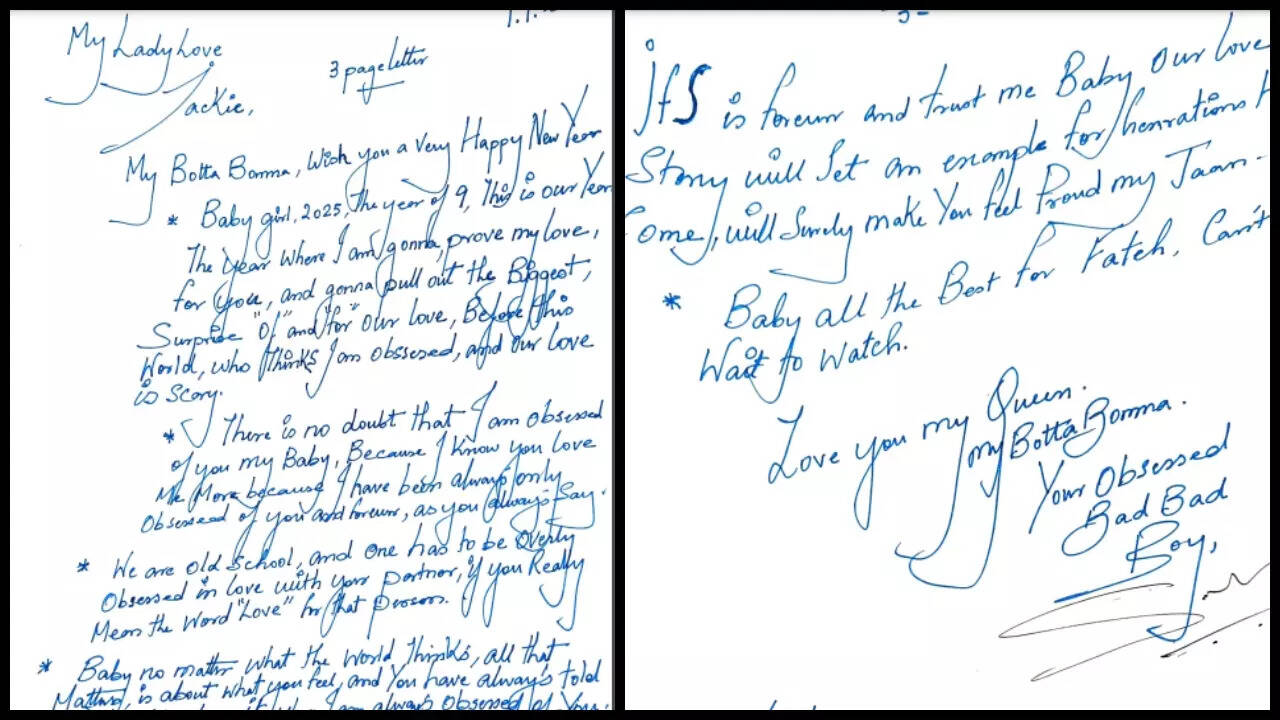 1.1.
My Lady Love
3 page letter
Jackie,
My Botta Bomma, Wish you a Very Happy New Year
* Baby girl, 2025, The year of 9, This is our Year
The year where I am gonna prove my love,
for you, and gonna pull out the Biggest,
Surprise "Of" and "for" Our love, Before this
World, who thinks I am obssesed, and our love
is Scary.
* There is no doubt that I am Obsessed
of you my Baby, Because I know you love
Me More because I have been always only
Obsessed of you and forever, as you always Say.
* We are old School, and one has to be Overly
Obsessed in love with your partner, if you Really
Mean the Word "Love" for that person.
* Baby no matter what the World thinks, all that
Matters, is about what you feel, and You have always told
I am always obsessed of You,
3
is forever and trust me Baby Our love
Story will Set an example for Genrations t
Come, will Surely make You feel Proud my Jaan.
* Baby all the Best for Fateh, Can't
Wait to Watch.
Love you my Queen.
my Botta Bomma.
Your Obsessed
Bad Bad
Boy,